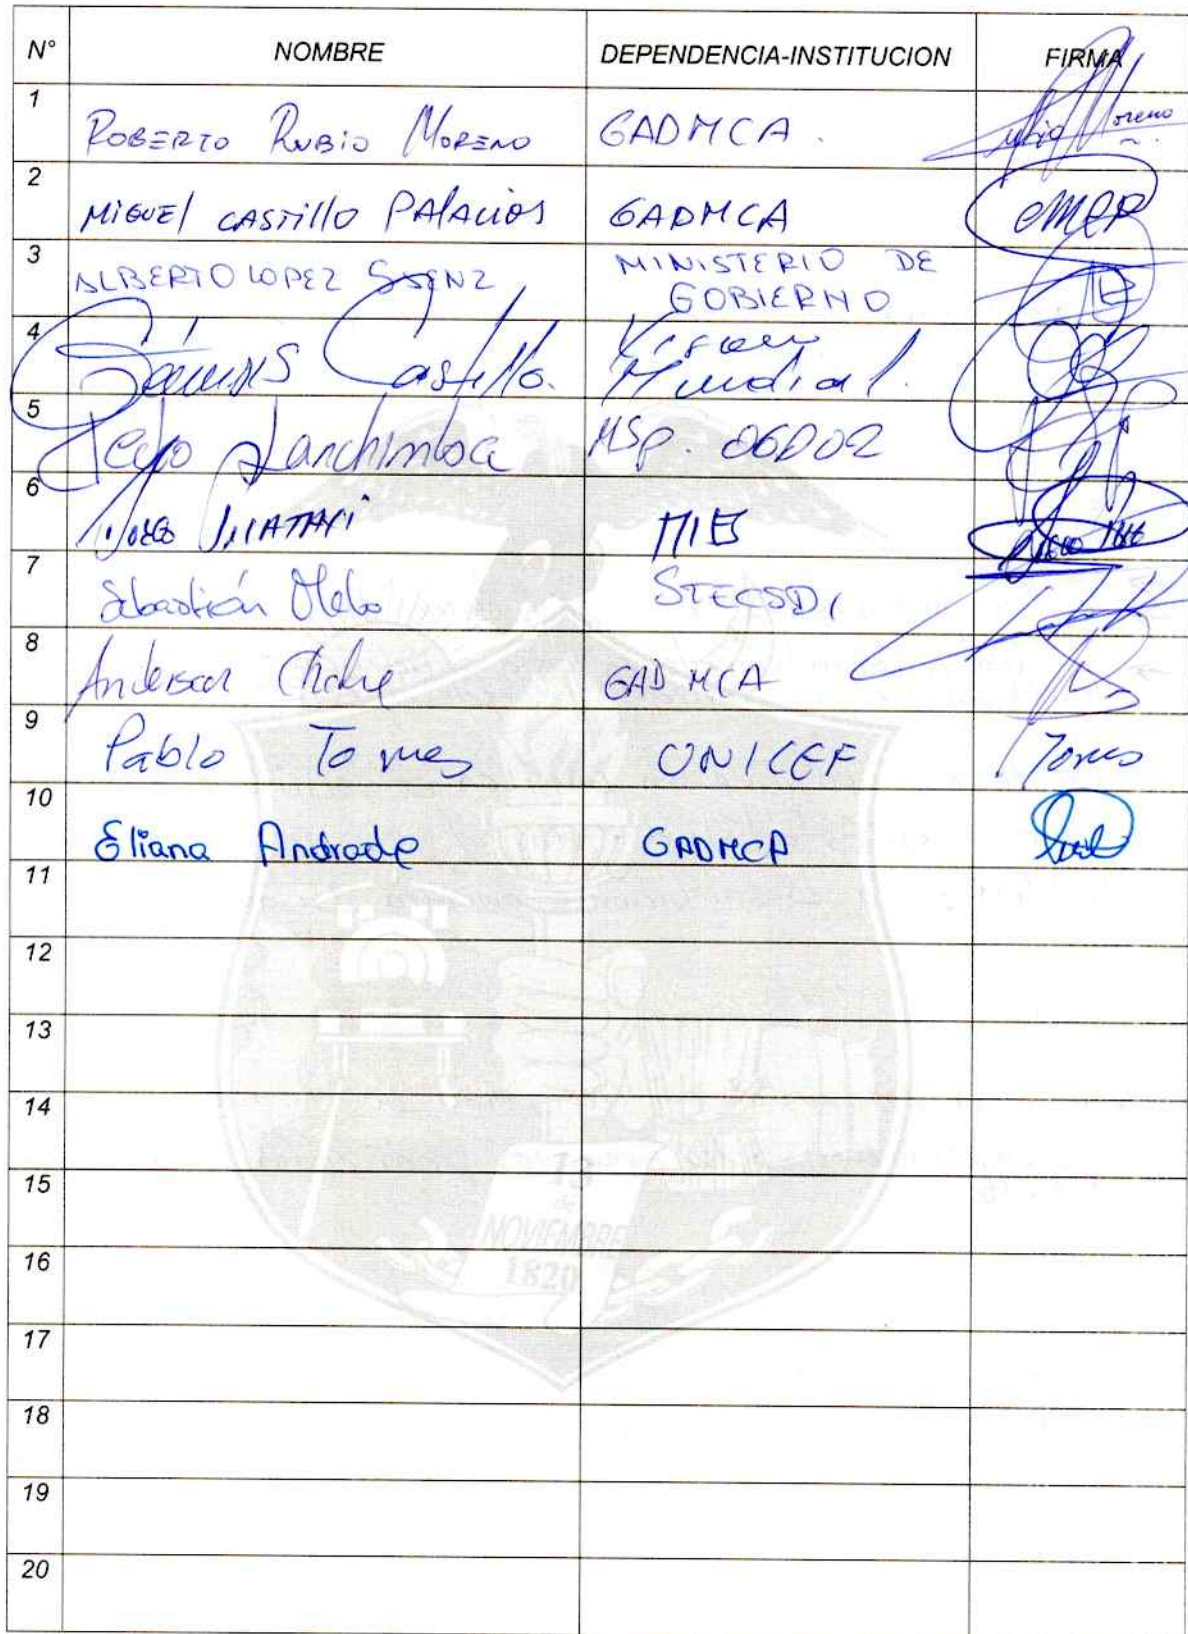 N° NOMBRE DEPENDENCIA-INSTITUCION FIRMA
1 ROBERTO RUBIO MORENO GADMCA. Rubio Moreno
2 MIGUEL CASTILLO PALACIOS GADMCA CMCP
3 ALBERTO LOPEZ SAENZ MINISTERIO DE
GOBIERNO
4 Castillo. Vision
Mundial.
5 Lanchimba MSP. 06D02
6 MIES
7 Sebastián STECSDI
8 Anderson GADMCA
9 Pablo Torres UNICEF Torres
10 Eliana Andrade GADMCA
11
12
13
14
15
16
17
18
19
20
13
de
NOVIEMBRE
1820